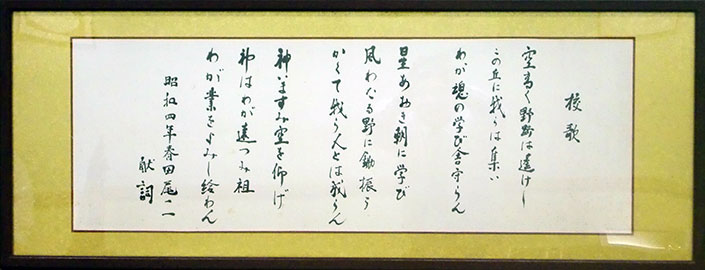 校歌
空高く野路は遙けし
この丘に我らは集い
わが魂の学び舎守らん
星あおき朝に学び
風わたる野に鋤振う
かくて我ら人とは成らん
神いますみ空を仰げ
神はわが遠つみ祖
わが業をよみし給わん
昭和四年春田尾一一
献詞